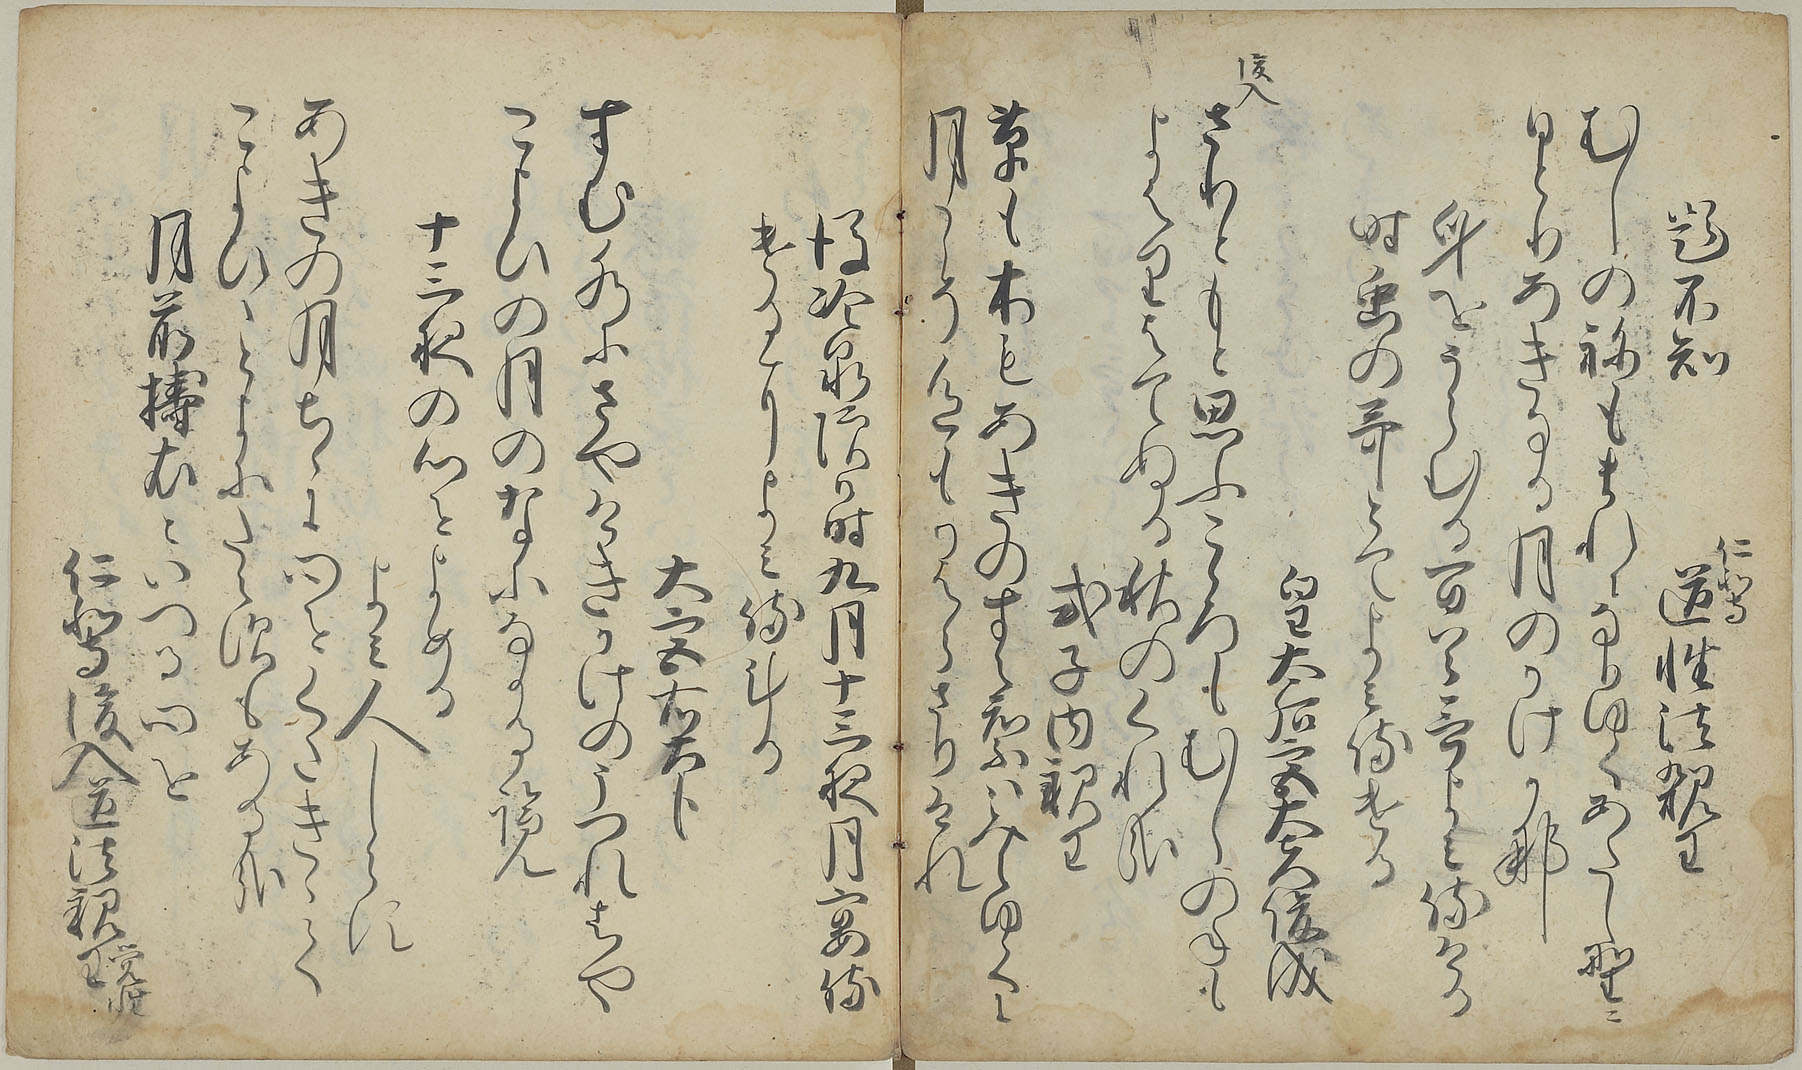 題不知
仁和寺
道性法親王
むしの祢もまれになりゆくあたし野に
ひとりあきなる月のかけか那
身をうらむる百首哥よみ侍ける
時虫の哥とてよみ侍ける
皇太后宮大夫俊成
後入
さりともと思ふこゝろもむしのねも
よはりはてぬる秋のくれ哉
式子内親王
草も木もあきのすゑ葉はみえゆくに
月こそ色もかはらさりけれ
後冷泉院御時九月十三夜月宴侍
けるによみ侍ける
大宮右大臣
すむ水にさやけきかけのうつれはや
こよひの月のなになかる覧
十三夜の心をよめる
よみ人しらす
あきの月ちゝに心をくたききて
こよひ一よにたえすもあるかな
月前擣衣といへる心を
仁和寺後入道法親王 覚性